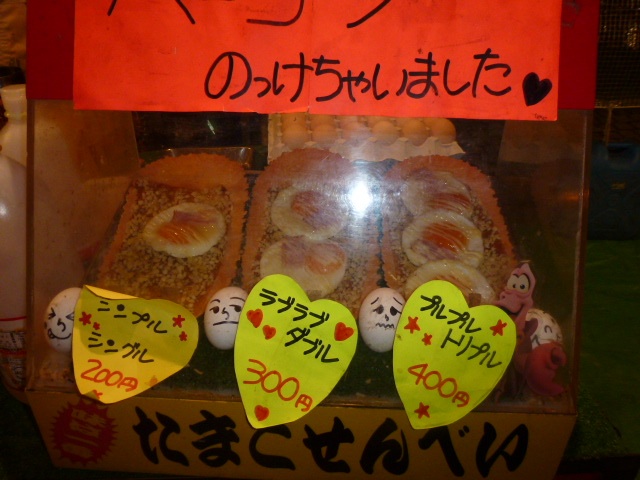 のっけちゃいました♥
シンプル
シングル
200円
ラブラブ
ダブル
300円
プルプル
トリプル
400円
たまごせんべい